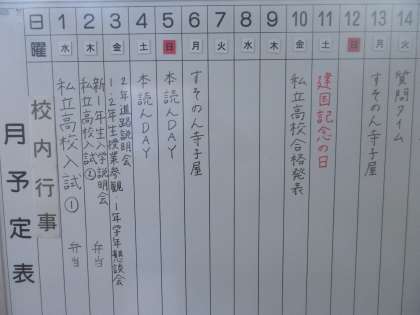 校内行事
月予定表
日 1 2 3 4 5 6 7 8 9 10 11 12 13 14
曜 水 木 金 土 日 月 火 水 木 金 土 日 月 火
私立高校入試① 弁当
新一年生入学説明会
私立高校入試② 弁当
2年進路説明会
1・2年生授業参観・1年学年懇談会
本読んDAY
本読んDAY
すそのん寺子屋
私立高校合格発表
建国記念の日
すそのん寺子屋
質問タイム